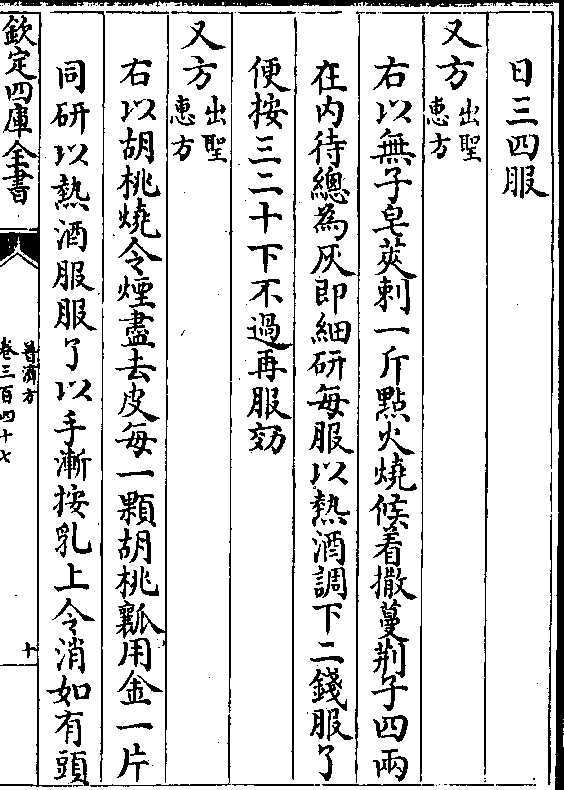 日三四服
又方出聖惠方
右以無子皂莢刺一斤點火燒候着撒蔓荆子四兩
在内待總為灰即細研每服以熱酒調下二錢服了
便按三二十下不過再服効
又方出聖惠方
右以胡桃燒令煙盡去皮每一顆胡桃瓤用金一片
同研以熱酒服服了以手漸按乳上令消如有頭
欽定四庫全書
普濟方
卷三百四十七
十